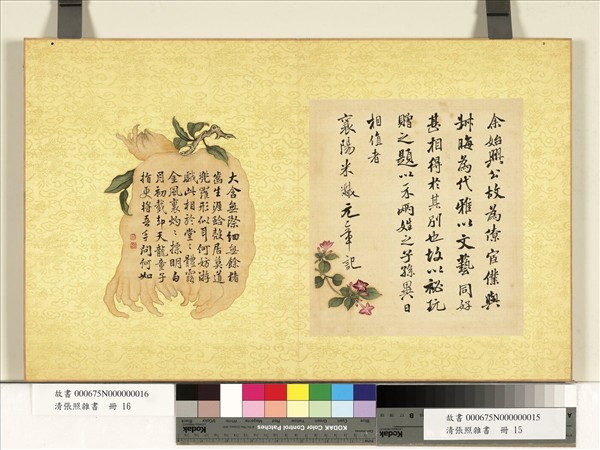 余始興公故為僚宦僕與
叔晦為代雅以文藝同好
甚相得於其別也故以祕玩
贈之題以示兩姓之子孫異日
相值者
襄陽米黻元章記
大含無際細無餘橘
窩生涯給殼居莫道
兜羅形似耳何妨游
戲此相於堂〻體露
金風裏灼〻探明白
月初截却天龍童子
指更將吾手問何如
故書 000675N000000016
清張照雜書 冊 16
KODAK Color Control Patches
故書 000675N000000015
清張照雜書 冊 15